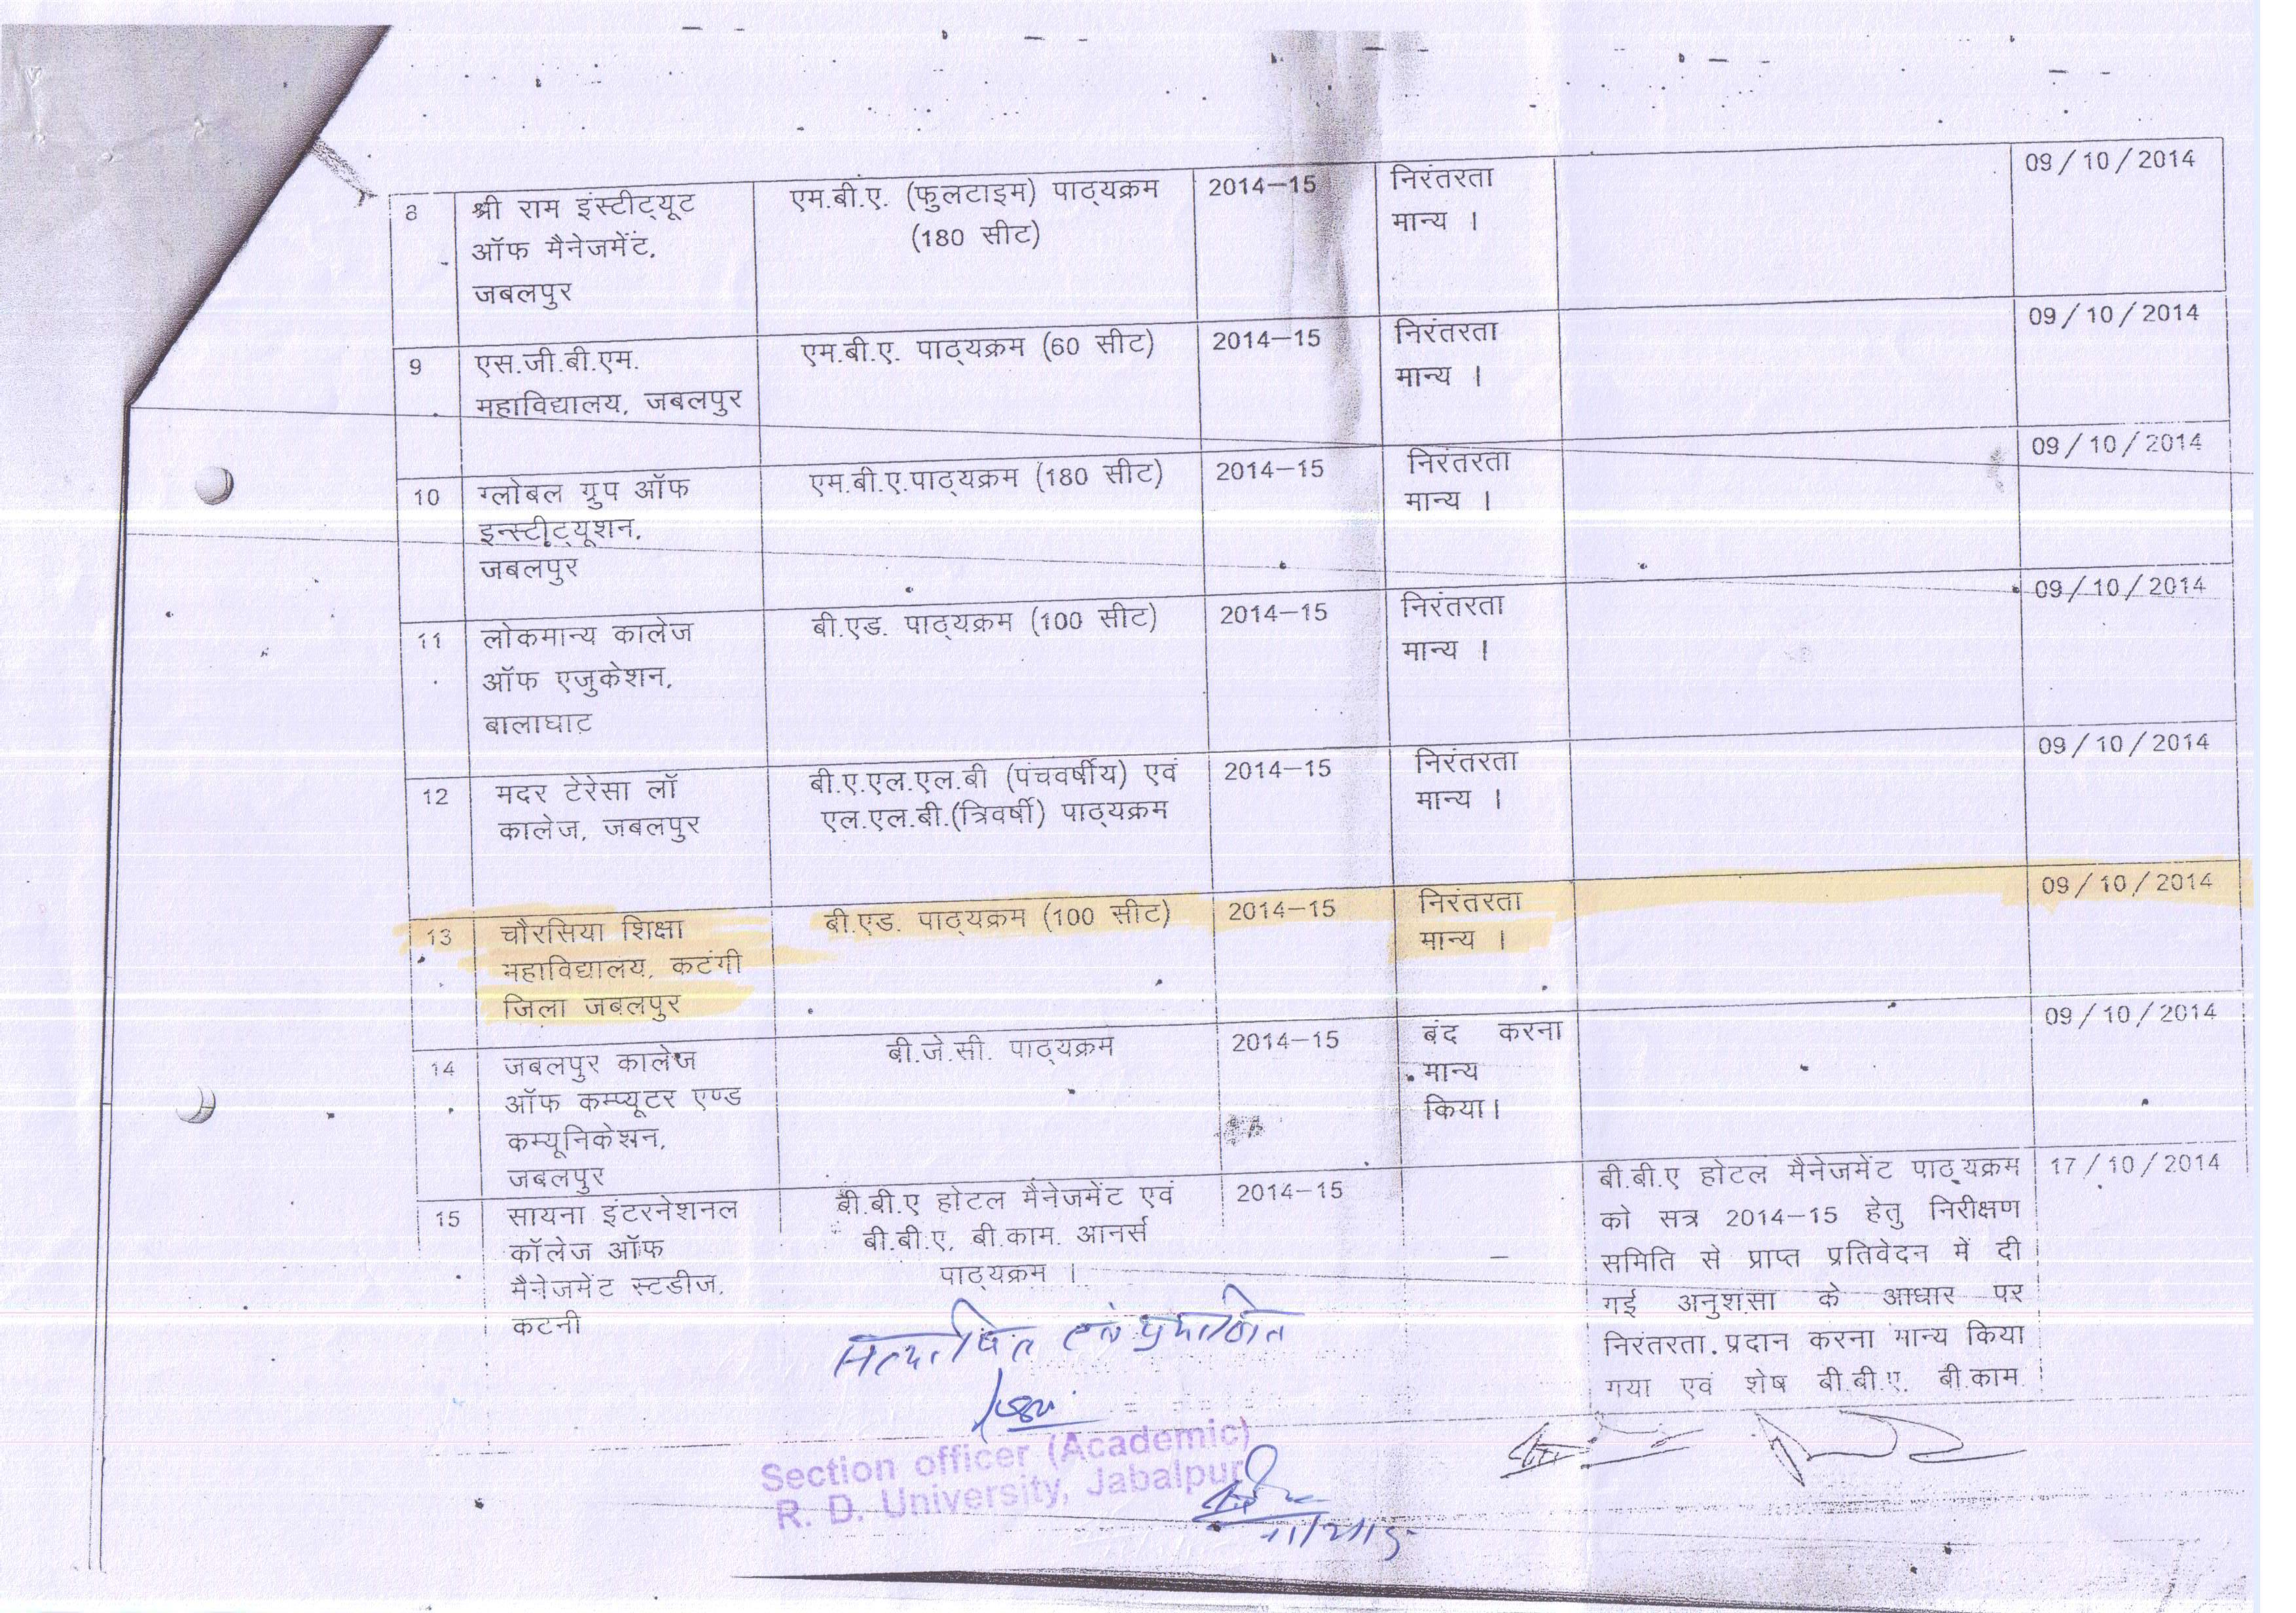 8 श्री राम इंस्टीट्यूट एम.बी.ए. (फुलटाइम) पाठ्यक्रम 2014–15 निरंतरता 09/10/2014
ऑफ मैनेजमेंट, (180 सीट) मान्य ।
जबलपुर
9 एस.जी.बी.एम. एम.बी.ए. पाठ्यक्रम (60 सीट) 2014–15 निरंतरता 09/10/2014
महाविद्यालय, जबलपुर मान्य ।
10 ग्लोबल ग्रुप ऑफ एम.बी.ए.पाठ्यक्रम (180 सीट) 2014–15 निरंतरता 09/10/2014
इन्स्टीट्यूशन, मान्य ।
जबलपुर
11 लोकमान्य कालेज बी.एड. पाठ्यक्रम (100 सीट) 2014–15 निरंतरता 09/10/2014
ऑफ एजुकेशन, मान्य ।
बालाघाट
12 मदर टेरेसा लॉ बी.ए.एल.एल.बी (पंचवर्षीय) एवं 2014–15 निरंतरता 09/10/2014
कालेज, जबलपुर एल.एल.बी.(त्रिवर्षी) पाठ्यक्रम मान्य ।
13 चौरसिया शिक्षा बी.एड. पाठ्यक्रम (100 सीट) 2014–15 निरंतरता 09/10/2014
महाविद्यालय, कटंगी मान्य ।
जिला जबलपुर
14 जबलपुर कालेज बी.जे.सी. पाठ्यक्रम 2014–15 बंद करना 09/10/2014
ऑफ कम्प्यूटर एण्ड मान्य
कम्यूनिकेशन, किया।
जबलपुर
15 सायना इंटरनेशनल बी.बी.ए होटल मैनेजमेंट एवं 2014–15 – बी.बी.ए होटल मैनेजमेंट पाठ्यक्रम 17/10/2014
कॉलेज ऑफ बी.बी.ए, बी.काम. आनर्स को सत्र 2014–15 हेतु निरीक्षण
मैनेजमेंट स्टडीज, पाठ्यक्रम । समिति से प्राप्त प्रतिवेदन में दी
कटनी गई अनुशसा के आधार पर
निरंतरता प्रदान करना मान्य किया
गया एवं शेष बी.बी.ए, बी.काम.
सत्यापित एवं प्रमाणित
Section officer (Academic)
R. D. University, Jabalpur